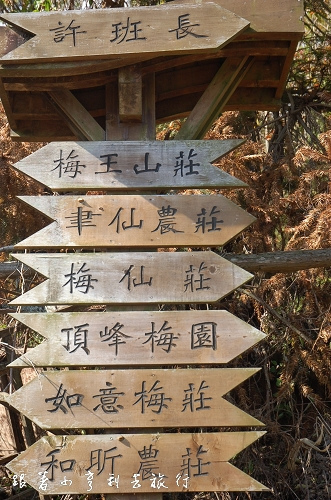 許班長
梅王山莊
聿仙農莊
梅仙莊
頂峰梅園
如意梅莊
和昕農莊
跟著小亨利去旅行